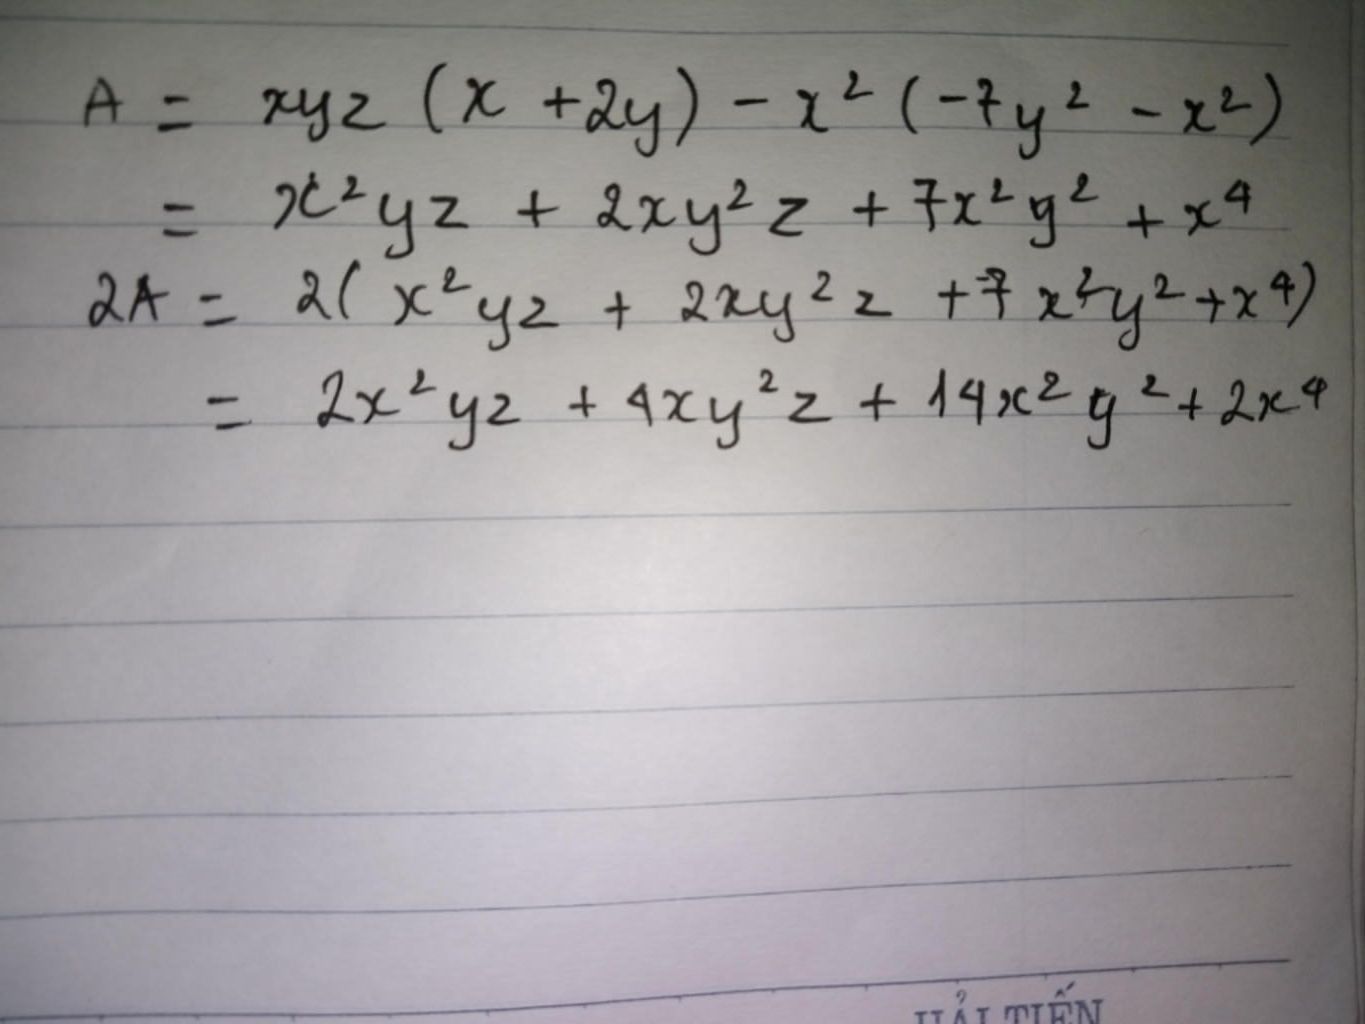 A = xyz (x + 2y) - x² (-7y² - x²)
= x²yz + 2xy²z + 7x²y² + x⁴
2A = 2( x²yz + 2xy²z + 7x²y² + x⁴)
= 2x²yz + 4xy²z + 14x²y² + 2x⁴
HẢI TIẾN